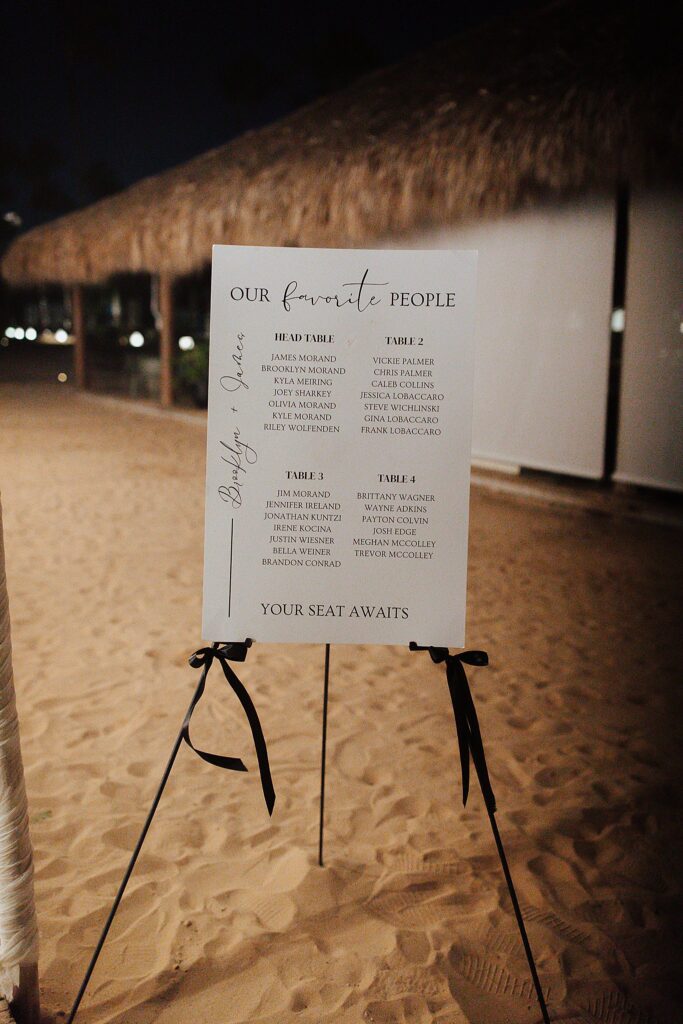 OUR favorite PEOPLE
Brooklyn + James
HEAD TABLE
JAMES MORAND
BROOKLYN MORAND
KYLA MEIRING
JOEY SHARKEY
OLIVIA MORAND
KYLE MORAND
RILEY WOLFENDEN
TABLE 2
VICKIE PALMER
CHRIS PALMER
CALEB COLLINS
JESSICA LOBACCARO
STEVE WICHLINSKI
GINA LOBACCARO
FRANK LOBACCARO
TABLE 3
JIM MORAND
JENNIFER IRELAND
JONATHAN KUNTZI
IRENE KOCINA
JUSTIN WIESNER
BELLA WEINER
BRANDON CONRAD
TABLE 4
BRITTANY WAGNER
WAYNE ADKINS
PAYTON COLVIN
JOSH EDGE
MEGHAN MCCOLLEY
TREVOR MCCOLLEY
YOUR SEAT AWAITS